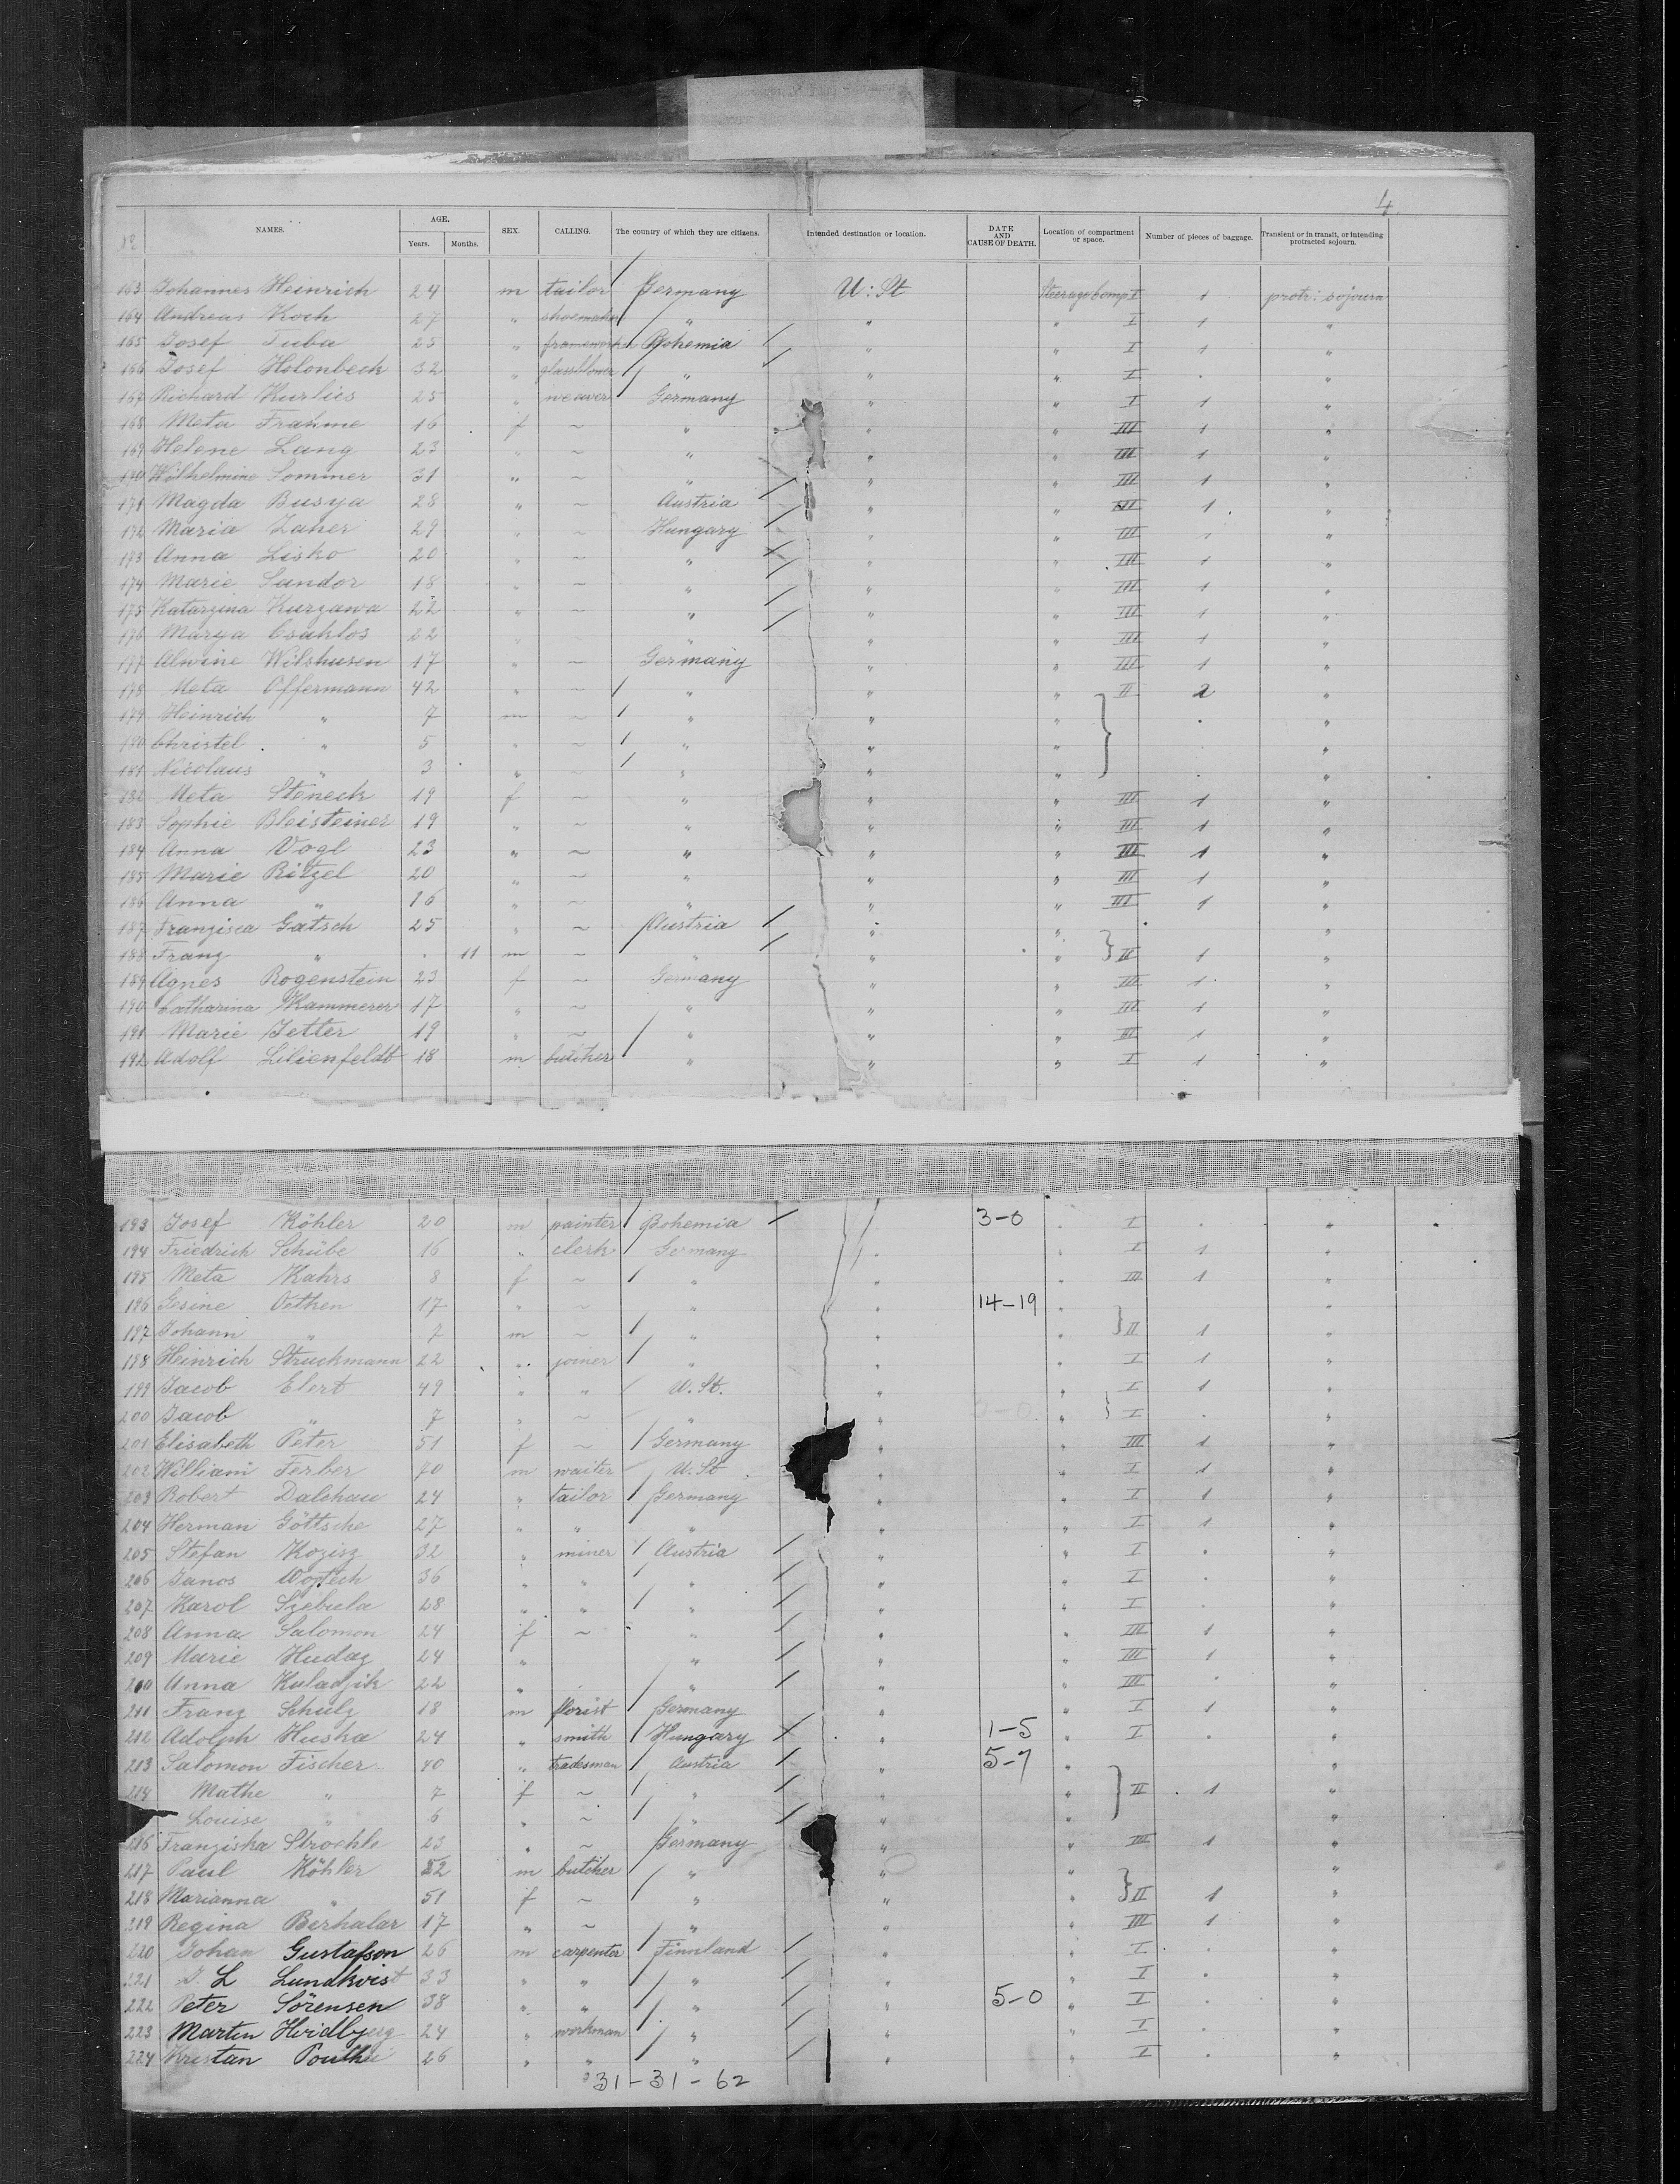 4
No NAMES. AGE. Years. Months. SEX. CALLING. The country of which they are citizens. Intended destination or location. DATE AND CAUSE OF DEATH. Location of compartment or space. Number of pieces of baggage. Transient or in transit, or intending protracted sojourn.
163 Johannes Heinrich 24 m tailor Germany U: St Steerage Comp I 1 protr: sojourn
164 Andreas Koch 27 " shoemaker " " " I 1 "
165 Josef Tuba 25 " Bohemia " " I 1 "
166 Josef Holonbeck 32 " glassblower " " " I . "
167 Richard Kurlies 25 " weaver Germany " " I 1 "
168 Meta Frahme 16 f ~ " " " III 1 "
169 Helene Lang 23 " ~ " " " III 1 "
170 Wilhelmine Sommer 31 " ~ " " " III 1 "
171 Magda Busya 28 " ~ Austria " " III 1 "
172 Maria Zaher 29 " ~ Hungary " " III 1 "
173 Anna Lisko 20 " ~ " " " III 1 "
174 Marie Sandor 18 " ~ " " " III 1 "
175 Katarzina Kurzawa 22 " ~ " " " III 1 "
176 Marya Csahlos 22 " ~ " " " III 1 "
177 Alwine Wilshusen 17 " ~ Germany " " III 1 "
178 Meta Offermann 42 " ~ " " " II 2 "
179 Heinrich " 7 m ~ " " " . "
180 Christel " 5 " ~ " " " "
181 Nicolaus " 3 " ~ " " " . "
182 Meta Steneck 19 f ~ " " " III 1 "
183 Sophie Bleisteiner 19 " ~ " " " III 1 "
184 Anna Vogl 23 " ~ " " " III 1 "
185 Marie Ritzel 20 " ~ " " " III 1 "
186 Anna " 16 " ~ " " " III 1 "
187 Franzisca Gatsch 25 " ~ Austria " " "
188 Franz " . 11 m ~ " " " II 1 "
189 Agnes Rogenstein 23 f ~ Germany " " III 1 "
190 Catharina Kammerer 17 " ~ " " " III 1 "
191 Marie Jetter 19 " ~ " " " III 1 "
192 Adolf Lilienfeldt 18 m butcher " " " I 1 "
193 Josef Köhler 20 m painter Bohemia 3-0 " I . "
194 Friedrich Schübe 16 " clerk Germany " " I 1 "
195 Meta Kahrs 8 f ~ " " " III 1 "
196 Gesine Oethen 17 " ~ " " 14-19 " "
197 Johann " 7 m ~ " " " II 1 "
198 Heinrich Struckmann 22 " joiner " " " I 1 "
199 Jacob Elert 49 " " U. St. " " I 1 "
200 Jacob " 7 " ~ " " " I . "
201 Elisabeth Peter 51 f ~ Germany " " III 1 "
202 William Ferber 70 m waiter U. St " I 1 "
203 Robert Dalchau 24 " tailor Germany " " I 1 "
204 Herman Göttsche 27 " " " " " I 1 "
205 Stefan Kozisz 32 " miner Austria " " I . "
206 Janos Wojtech 36 " " " " " I . "
207 Karol Szebula 48 " " " " " I . "
208 Anna Salomon 24 f ~ " " " III 1 "
209 Marie Hudaz 24 " " " " III 1 "
210 Anna Kuladzik 22 " " " " III . "
211 Franz Schulz 18 m florist Germany " " I 1 "
212 Adolph Huska 24 " smith Hungary " 1-5 " I . "
213 Salomon Fischer 40 " tradesman Austria " 5-7 " "
214 Mathe " 7 f ~ " " " II 1 "
Louise " 6 " ~ " " " "
216 Franziska Stroehle 23 " ~ Germany " " III 1 "
217 Paul Köhler 52 m butcher " " " "
218 Marianna " 51 f ~ " " " II 1 "
219 Regina Berhalar 17 " ~ " " " III 1 "
220 Johan Gustafson 26 m carpenter Finnland " " I . "
221 J. L Lundkvist 33 " " " " " I . "
222 Peter Sörensen 38 " " " " 5-0 " I . "
223 Martin Hvidbjerg 24 " workman " " " I . "
224 Kristan 26 " " " " " I . "
31 - 31 - 62